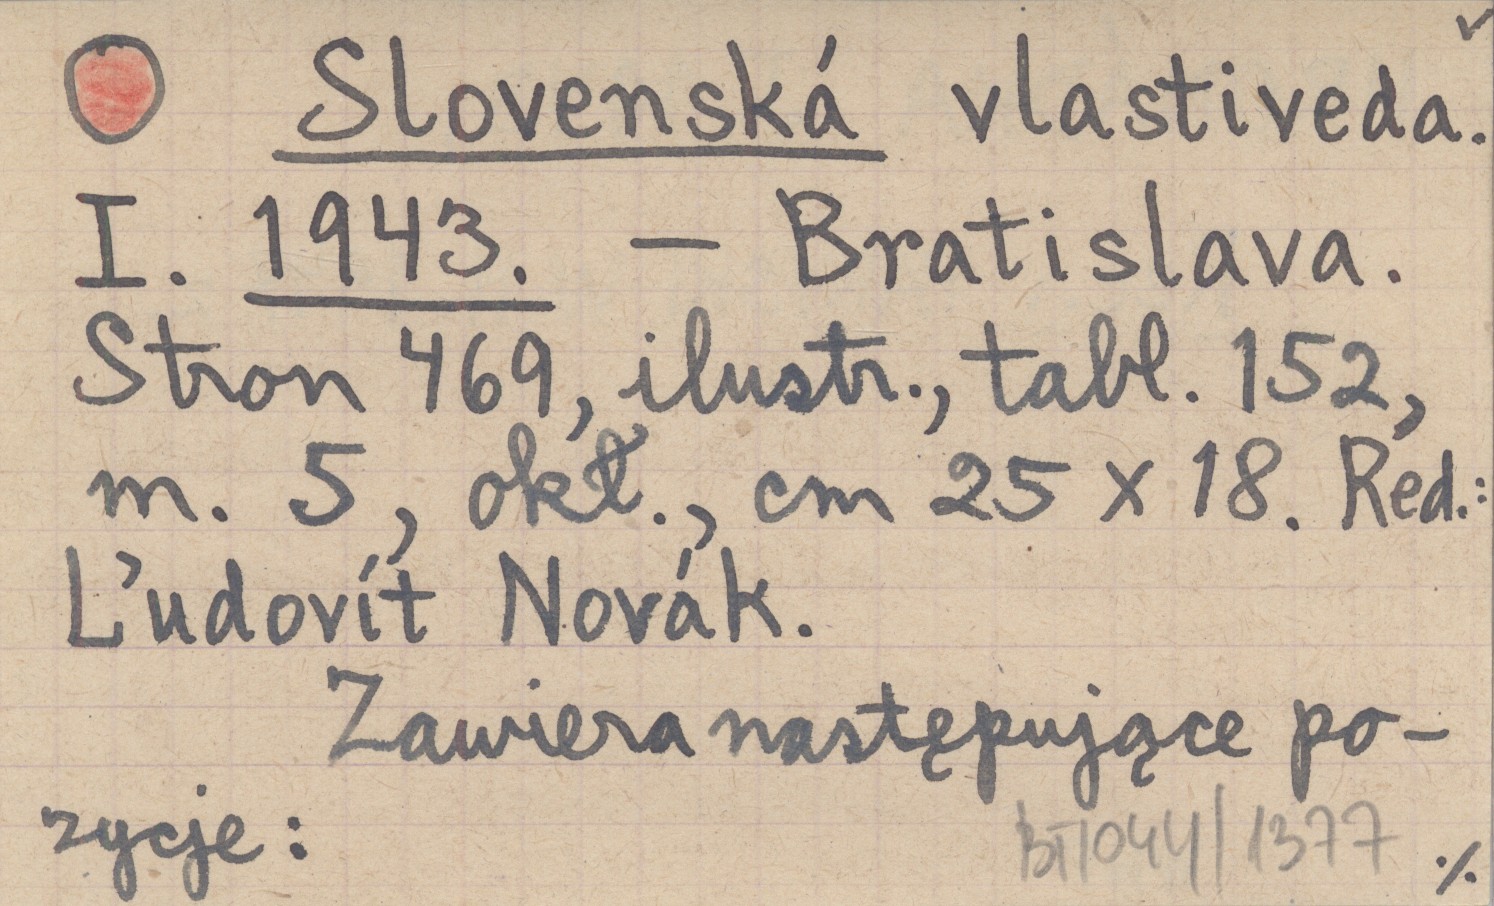 Slovenská vlastiveda.
I. 1943. — Bratislava.
Stron 469, ilustr., tabl. 152,
m. 5, okł., cm 25 x 18. Red.:
Ľudovít Novák.
Zawiera następujące po-
zycje:
BT/044/1377
./.